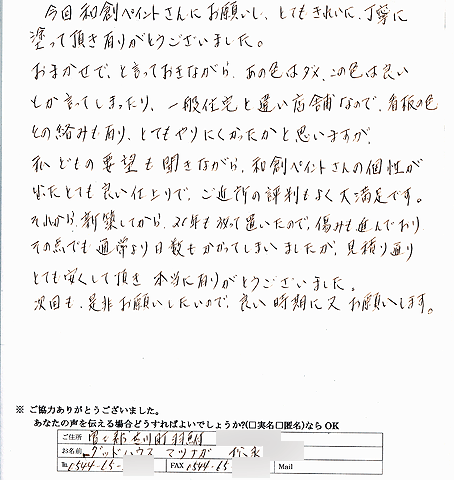 今回 和創ペイントさんにお願いし、とてもきれいに、丁寧に
塗って頂き有りがとうございました。
おまかせで、と言っておきながら、あの色はダメ、この色は良い
とか言ってしまったり、一般住宅と違い店舗なので、看板の色
との絡みも有り、とてもやりにくかったかと思いますが、
私どもの要望も聞きながら、和創ペイントさんの個性が
出たとても良い仕上りで、ご近所の評判もよく大満足です。
それから、新築してから、20年も過ぎて居たので、傷みも進んでおり
その点でも通常より日数もかかってしまいましたが、見積り通り
とても安くして頂き 本当に有りがとうございました。
次回も、是非お願いしたいので、良い時期に又お願いします。
※ ご協力ありがとうございました。
あなたの声を伝える場合どうすればよいでしょうか?(□実名□匿名)ならOK
ご住所
お名前 グッドハウス マツナガ 松永
℡ 0544-65- FAX 0544-65- Mail